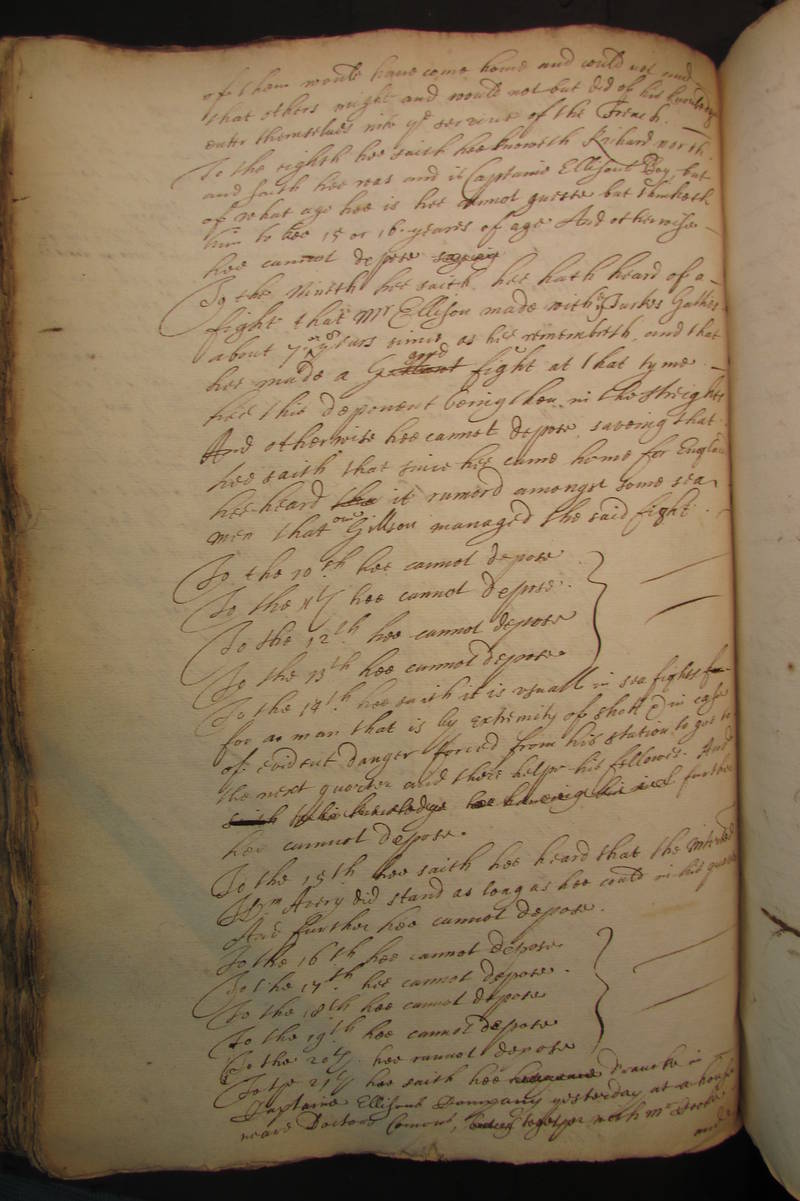 of them would have come home and could not and
that others might and would not but did of his knowledge
enter themselves into ye service of the French.
To the eighth hee saith hee knoweth Richard North
and saith hee was and is Captaine Ellisons Boy, but
of what age hee is hee cannot guesse but thinketh
him to bee 15 or 16 yeares of age And otherwise
hee cannot depose
To the Nineth hee saith hee hath heard of a
fight that Mr Ellison made with ye Turkes Gallies
about 7 or 8 yeares since as hee remembreth, and that
hee made a good fight at that tyme
hee this deponent being then in the streights
And otherwise hee cannot depose saveing that
hee saith that since hee came home for England
hee heard it rumord amongst some sea
men that one Gillson managed the said fight.
To the 10th hee cannot depose
To the 11th hee cannot depose.
To the 12th hee cannot depose
To the 13th hee cannot depose
To the 14th hee saith it is usuall in sea fights
for a man that is by extremity of shott & in case
of evident danger forced from his station to goe to
the next quarter and there helpe his fellowes. And
further
hee cannot depose.
To the 15th hee saith hee heard that the
Wm Avery did stand as long as hee could in his quarter
And further hee cannot depose.
To the 16th hee cannot depose
To the 17th hee cannot depose.
To the 18th hee cannot depose
To the 19th hee cannot depose
To the 20th hee cannot depose
To the 21th hee saith hee dranke in
Captaine Ellisons Company yesterday at a house
neare Doctors Comons, together with Mr
and